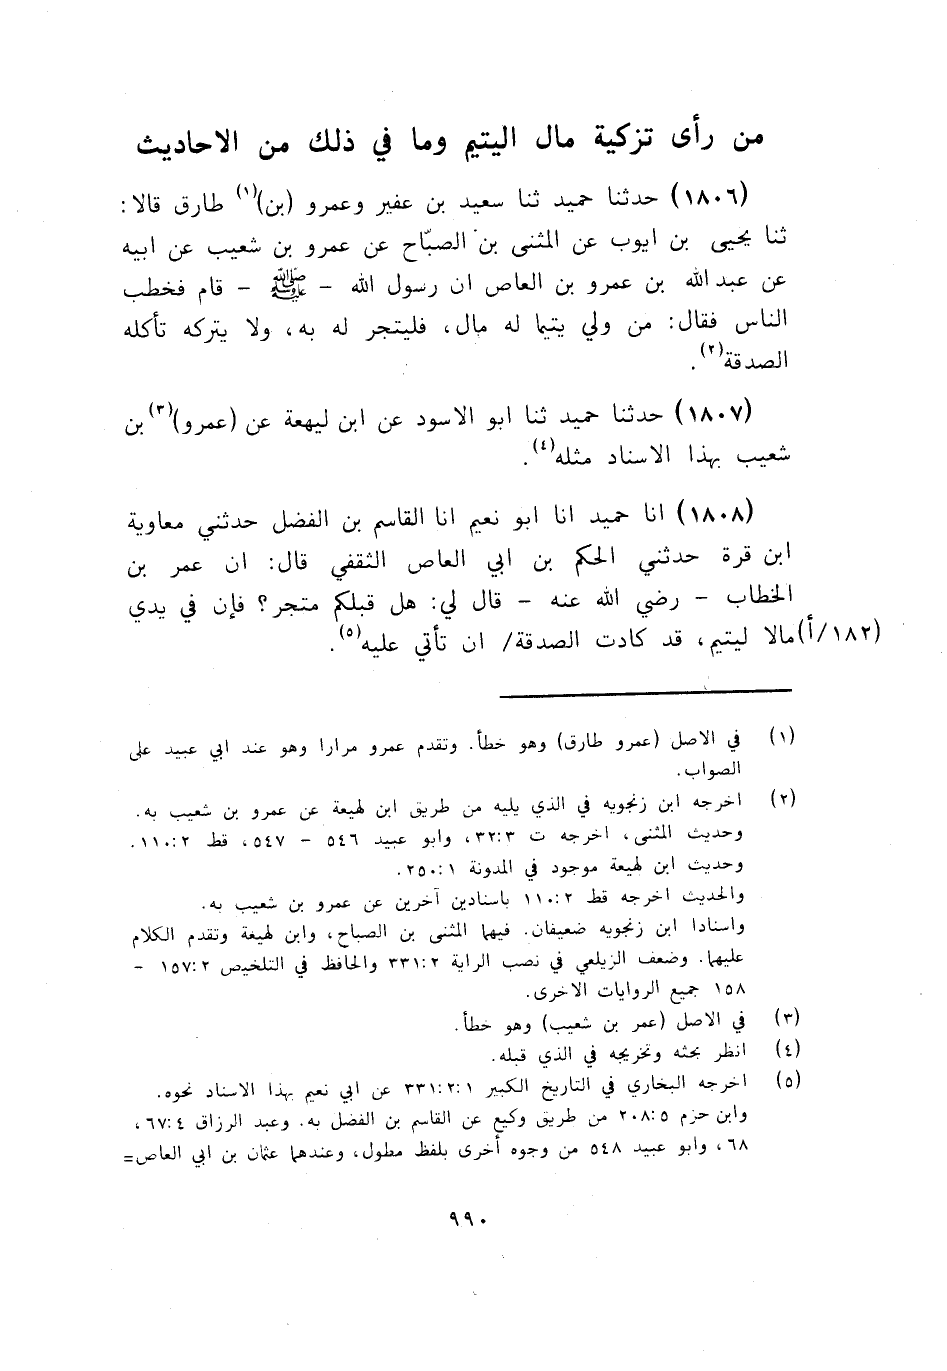 من رأى تزكية مال اليتيم وما في ذلك من الاحاديث
(١٨٠٦) حدثنا حميد ثنا سعيد بن عفير وعمرو (بن)(١) طارق قالا:
ثنا يحيى بن ايوب عن المثنى بن الصبّاح عن عمرو بن شعيب عن ابيه
عن عبد الله بن عمرو بن العاص ان رسول الله - ﷺ - قام فخطب
الناس فقال: من ولي يتيما له مال، فليتجر له به، ولا يتركه تأكله
الصدقة(٢).
(١٨٠٧) حدثنا حميد ثنا ابو الاسود عن ابن ليهعة عن (عمرو)(٣) بن
شعيب بهذا الاسناد مثله(٤).
(١٨٠٨) انا حميد انا ابو نعيم انا القاسم بن الفضل حدثني معاوية
ابن قرة حدثني الحكم بن ابي العاص الثقفي قال: ان عمر بن
الخطاب - رضي الله عنه - قال لي: هل قبلكم متجر؟ فإن في يدي
(١٨٢/أ) مالا ليتيم، قد كادت الصدقة/ ان تأتي عليه(٥).
(١) في الاصل (عمرو طارق) وهو خطأ. وتقدم عمرو مرارا وهو عند ابي عبيد على
الصواب.
(٢) اخرجه ابن زنجويه في الذي يليه من طريق ابن لهيعة عن عمرو بن شعيب به.
وحديث المثنى، اخرجه ت ٣٢:٣، وابو عبيد ٥٤٦ - ٥٤٧، قط ١١٠:٢.
وحديث ابن لهيعة موجود في المدونة ٢٥٠:١.
والحديث اخرجه قط ١١٠:٢ باسنادين آخرين عن عمرو بن شعيب به.
واسنادا ابن زنجويه ضعيفان. فيهما المثنى بن الصباح، وابن لهيعة وتقدم الكلام
عليهما. وضعف الزيلعي في نصب الراية ٣٣١:٢ والحافظ في التلخيص ١٥٧:٢ -
١٥٨ جميع الروايات الاخرى.
(٣) في الاصل (عمر بن شعيب) وهو خطأ.
(٤) انظر بحثه وتخريجه في الذي قبله.
(٥) اخرجه البخاري في التاريخ الكبير ٣٣١:٢:١ عن ابي نعيم بهذا الاسناد نحوه.
وابن حزم ٢٠٨:٥ من طريق وكيع عن القاسم بن الفضل به. وعبد الرزاق ٦٧:٤،
٦٨، وابو عبيد ٥٤٨ من وجوه أخرى بلفظ مطول، وعندهما عثمان بن ابي العاص=
٩٩٠